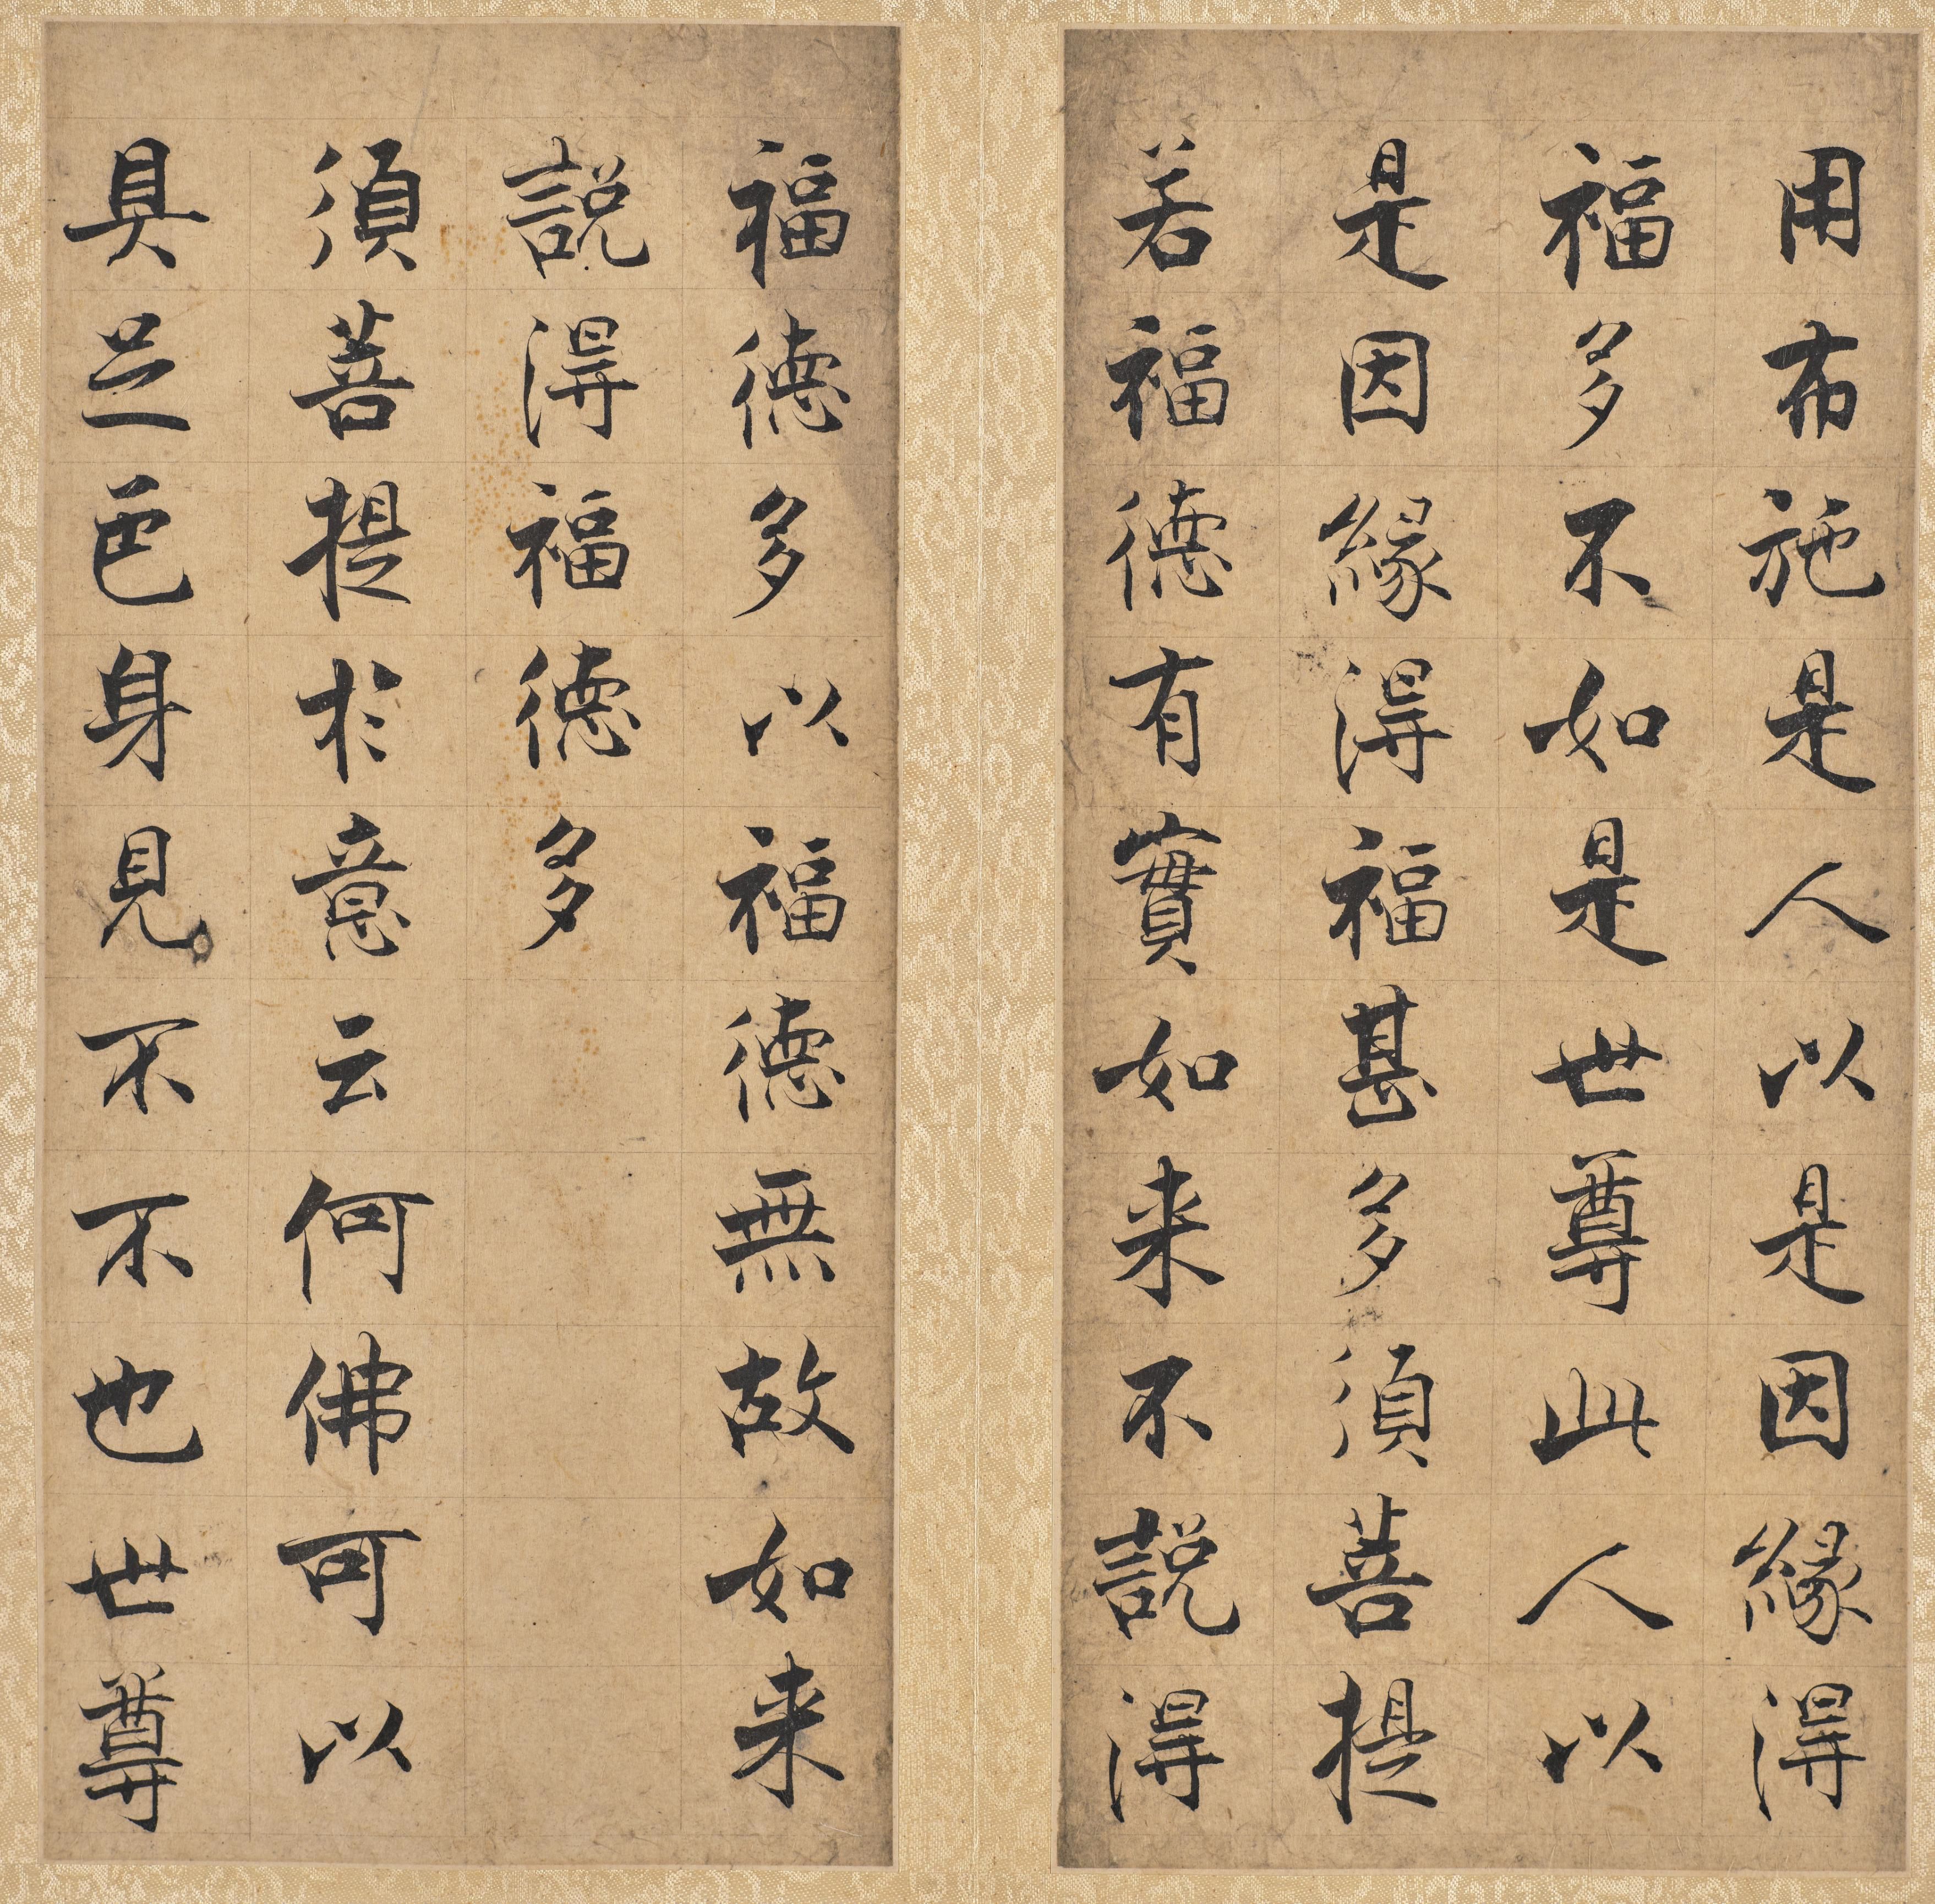 用布施是人以是因緣得
福多不如是世尊此人以
是因緣得福甚多須菩提
若福德有實如来不説得
福德多以福德無故如来
説得福德多
須菩提於意云何佛可以
具足色身見不不也世尊